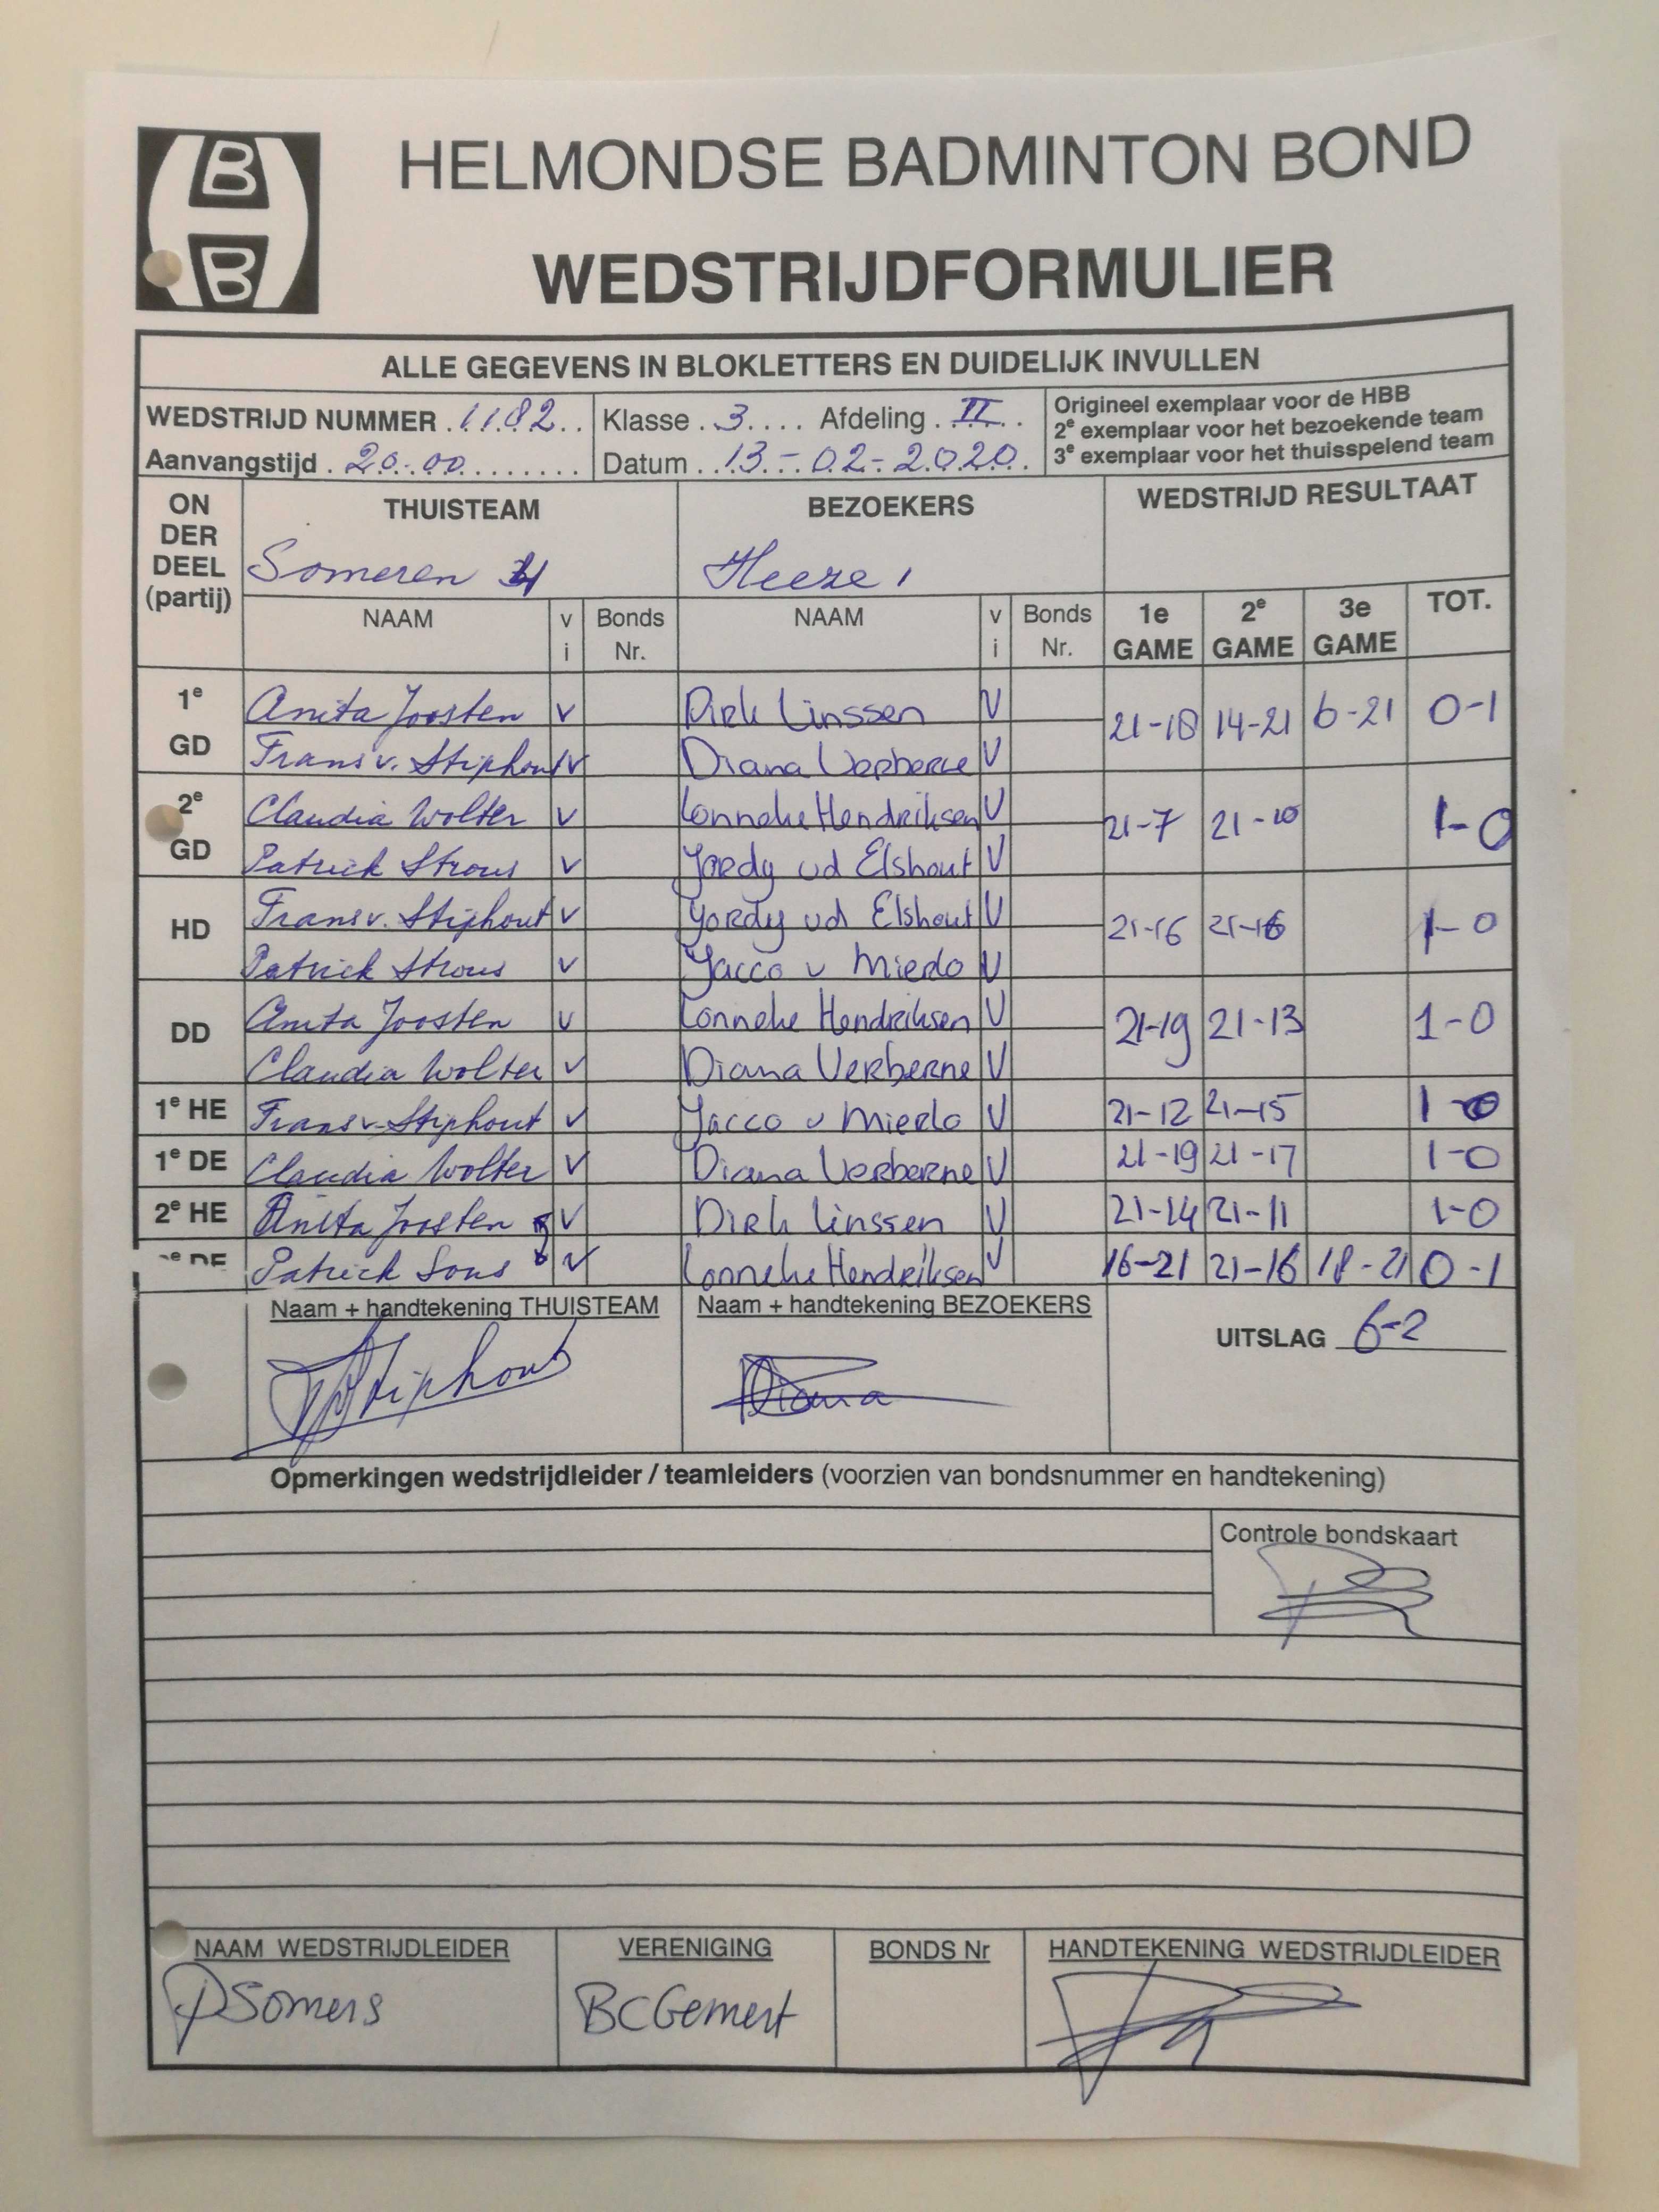 B
B
HELMONDSE BADMINTON BOND
WEDSTRIJDFORMULIER
ALLE GEGEVENS IN BLOKLETTERS EN DUIDELIJK INVULLEN
WEDSTRIJD NUMMER 1182 Klasse 3 Afdeling II
Origineel exemplaar voor de HBB
2e exemplaar voor het bezoekende team
3e exemplaar voor het thuisspelend team
Aanvangstijd 20.00 Datum 13-02-2020
ON
DER
DEEL
(partij)
THUISTEAM BEZOEKERS WEDSTRIJD RESULTAAT
Someren 4 Heeze 1
NAAM v i Bonds Nr. NAAM v i Bonds Nr. 1e GAME 2e GAME 3e GAME TOT.
1e Anita Joosten v Dirk Linssen V 21-18 14-21 6-21 0-1
GD Frans v. Stiphout v Diana Verberne V
2e Claudia Wolter v Lonneke Hendriksen V 21-7 21-10 1-0
GD Patrick Strous v Jordy vd Elshout V
HD Frans v. Stiphout v Yordy vd Elshout V 21-16 21-16 1-0
Patrick Strous v Jacco v Mierlo V
DD Anita Joosten v Lonneke Hendriksen V 21-19 21-13 1-0
Claudia Wolter v Diana Verberne V
1e HE Frans v. Stiphout v Jacco v Mierlo V 21-12 21-15 1-0
1e DE Claudia Wolter v Diana Verberne V 21-19 21-17 1-0
2e HE Anita Joosten v Dirk Linssen V 21-14 21-11 1-0
DE Patrick v Lonneke Hendriksen V 16-21 21-16 18-21 0-1
Naam + handtekening THUISTEAM Naam + handtekening BEZOEKERS UITSLAG 6-2
Stiphout Diana
Opmerkingen wedstrijdleider / teamleiders (voorzien van bondsnummer en handtekening)
Controle bondskaart
NAAM WEDSTRIJDLEIDER VERENIGING BONDS Nr HANDTEKENING WEDSTRIJDLEIDER
P Somers BC Gemert